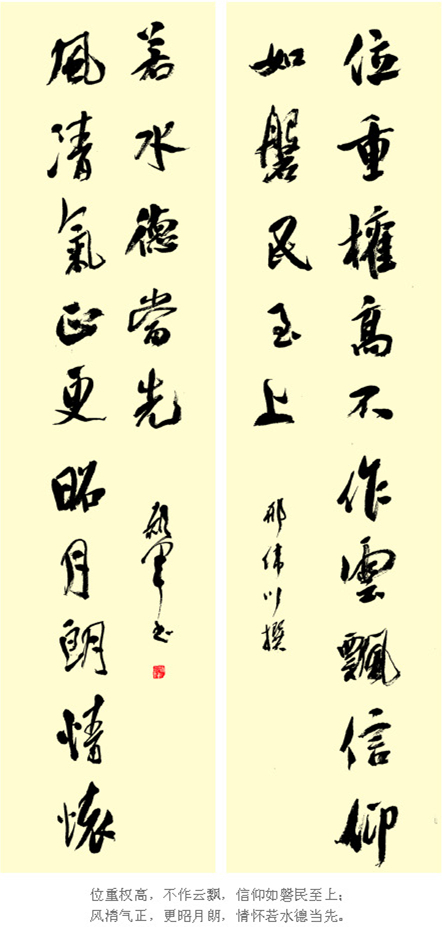 位重權高不作雲飄信仰
如磐民至上
邢偉川撰
風清氣正更昭月朗情懷
若水德當先
位重权高，不作云飘，信仰如磐民至上；
风清气正，更昭月朗，情怀若水德当先。